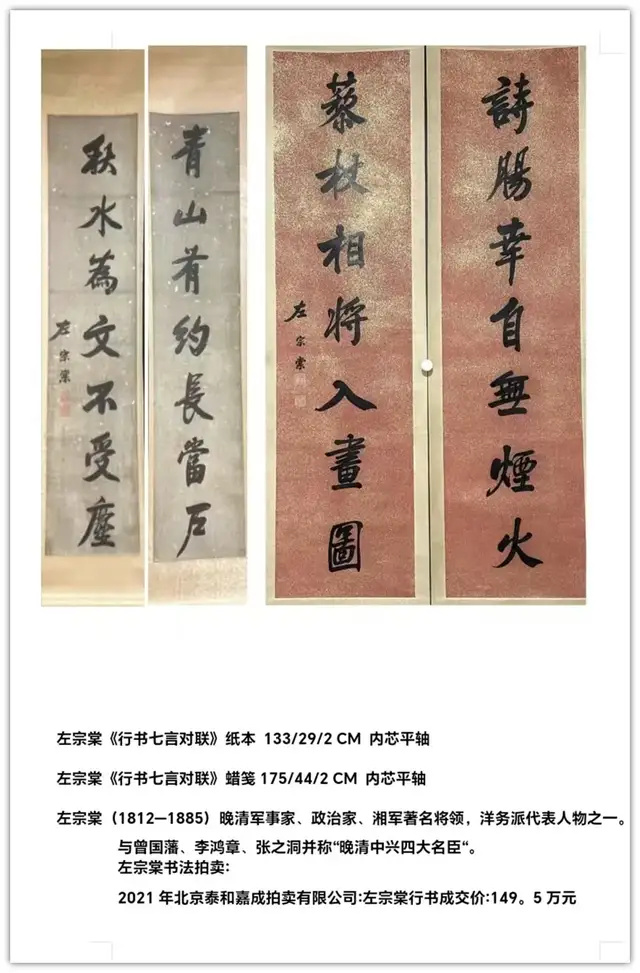 青山有約長當戶
秋水為文不受塵
左宗棠
詩腸幸自無煙火
藜杖相將入畫圖
左宗棠
左宗棠《行书七言对联》纸本 133/29/2 CM 内芯平轴
左宗棠《行书七言对联》蜡笺 175/44/2 CM 内芯平轴
左宗棠（1812—1885）晚清军事家、政治家、湘军著名将领，洋务派代表人物之一。
与曾国藩、李鸿章、张之洞并称“晚清中兴四大名臣“。
左宗棠书法拍卖：
2021 年北京泰和嘉成拍卖有限公司:左宗棠行书成交价:149。5 万元